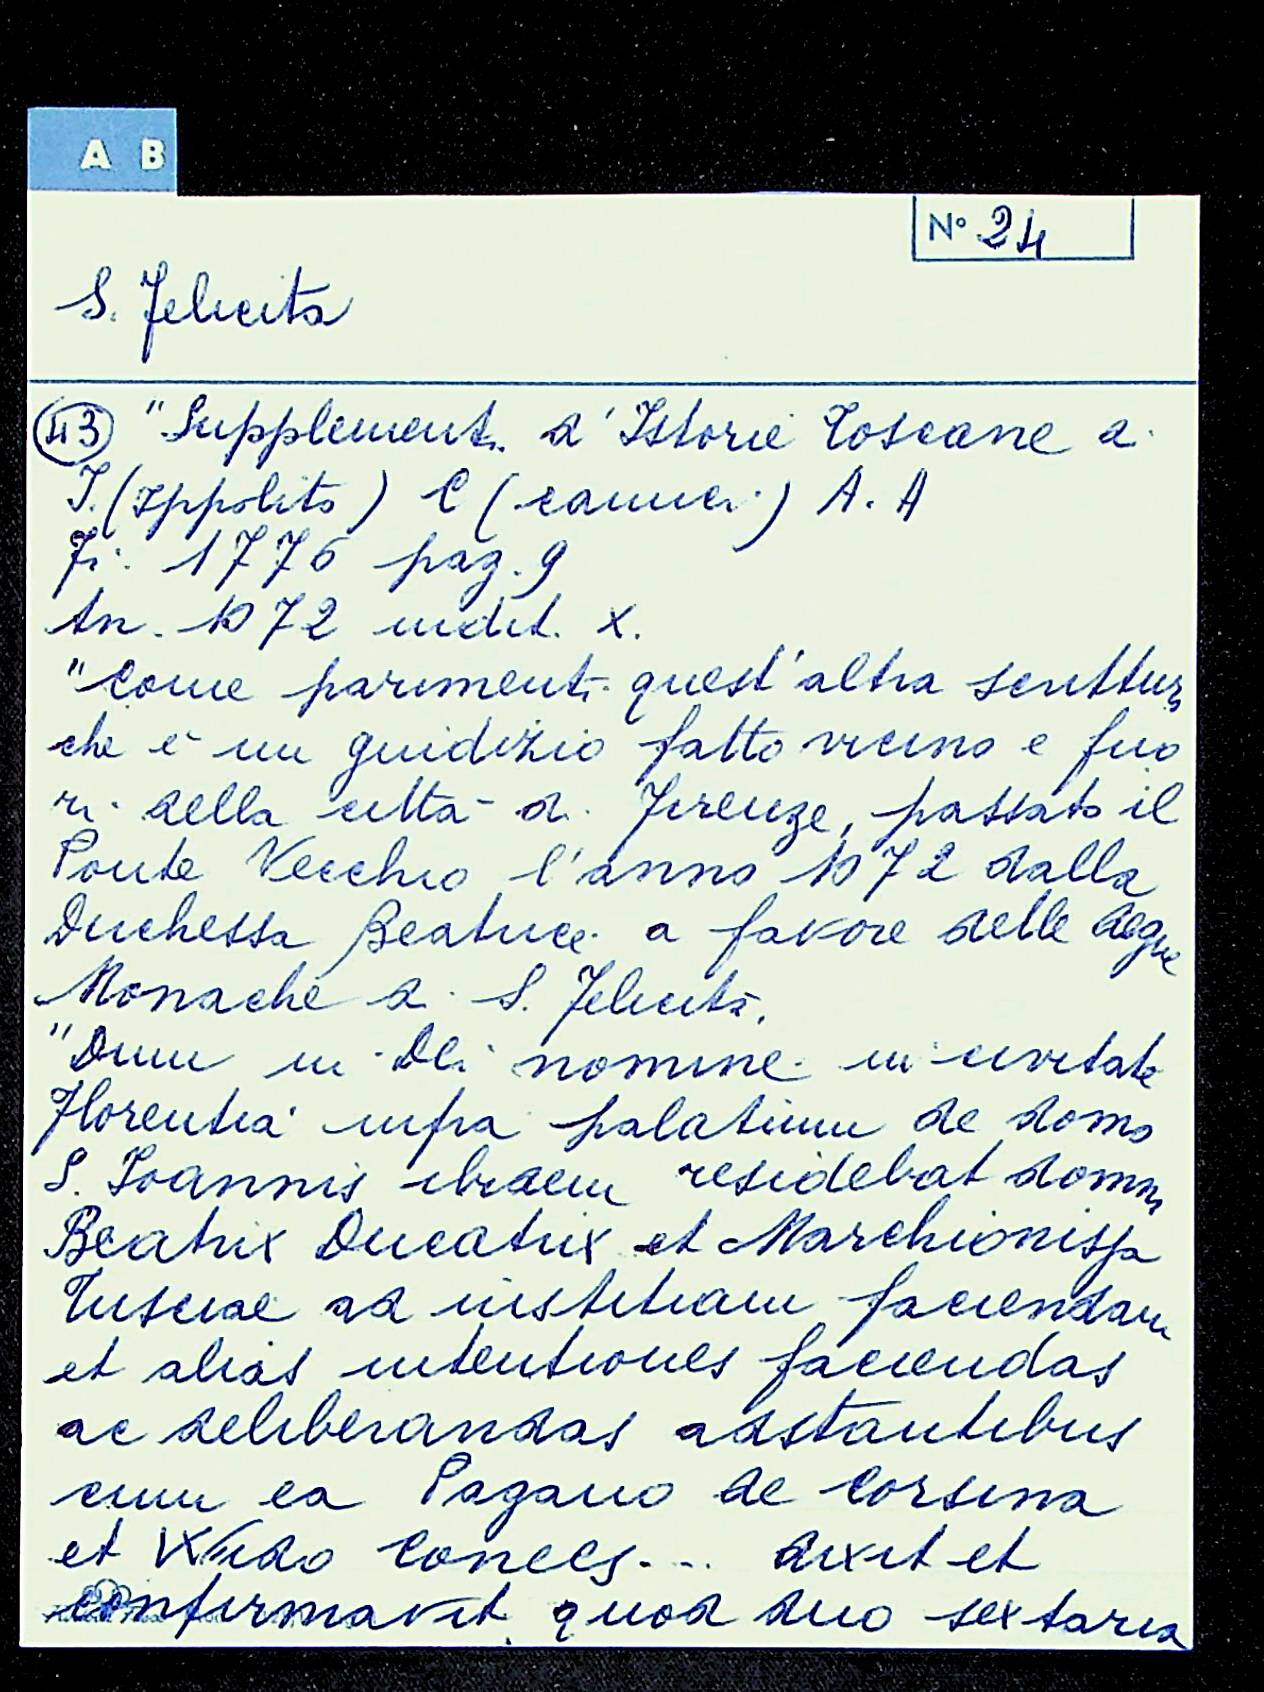 A B
N° 24
S. Felicita
43 "Supplementi d'Istorie Toscane di
I. (Ippolito) C (camici) A. A
Fi. 1776 pag. 9
An. 1072 indit. X.
"Come parimenti quest'altra scrittura
che è un guidizio fatto vicino e fuo
ri della città di Firenze, passato il
Ponte Vecchio l'anno 1072 dalla
Duchessa Beatrice a favore delle
Monache di S. Felicità.
"Dum in Dei nomine in civitate
Florentia infra palatium de domo
S. Ioannis ibidem residebat
Beatrix Ducatrix et Marchionissa
Tusciae ad iustitiam faciendam
et alias intentiones faciendas
ac deliberandas adstantibus
cum ea Pagano de Corsina
et Wido ... dixit et
confirmavit quod duo sextaria